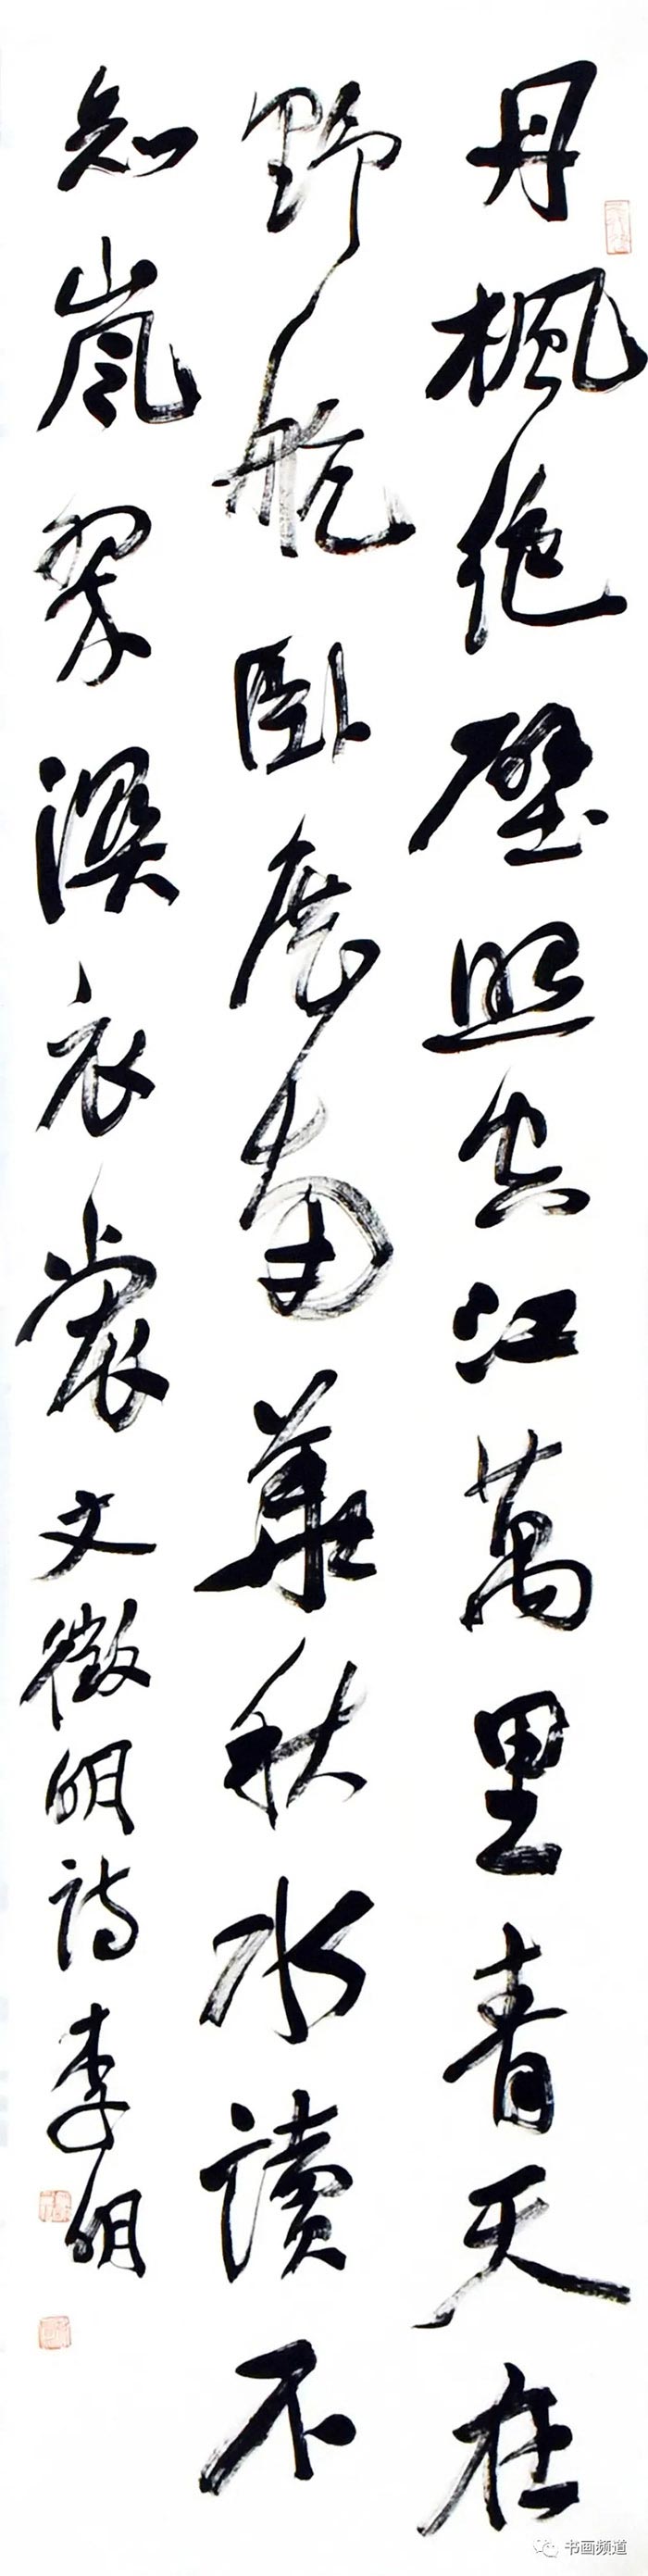 丹楓絶壁照空江萬里青天在
野航卧展南華秋水讀不
知嵐翠濕衣裳文徵明詩李明
书画频道